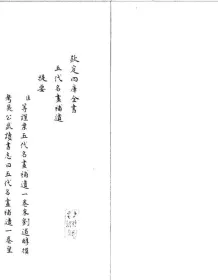 欽定四庫全書
五代名畫補遺
提要
臣等謹案五代名畫補遺一卷宋劉道醇撰
考晁公武讀書志曰五代名畫補遺一卷皇